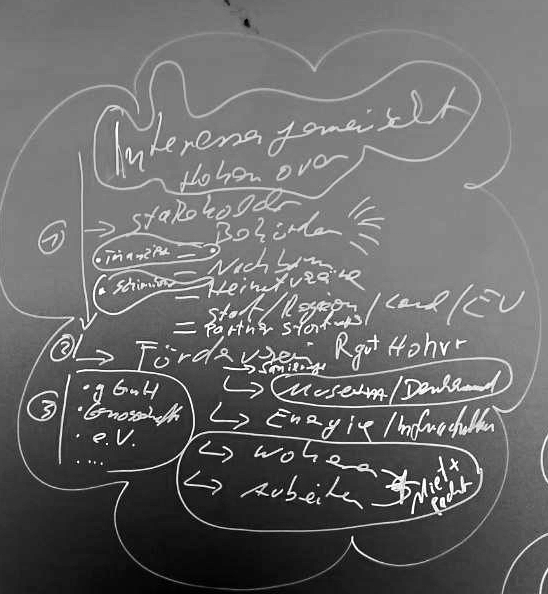 Interessengemeinschaft
Hohen
① → Stakeholder
Behörden
• Finanziell = Nachbarn
• Stimmen = Heimatvereine
= Stadt/Region/Land/EU
= Partner Startups
② → Förderverein Rgut Hohvr
→ Sanierung
③ • gGmbH
↳ Museum/Denkmal
• Genossenschaft
↳ Energie/Infrastruktur
• e.V.
↳ Wohnen
• ....
↳ Arbeiten
Miet +
Pacht